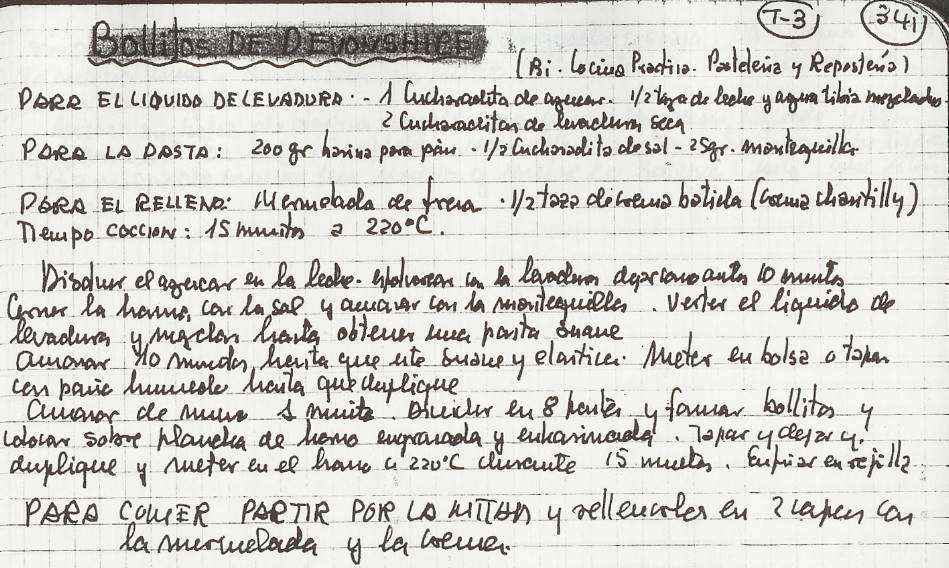 T-3 341
Bollitos DE DEVONSHIRE
(Bi. Cocina Practica. Pasteleria y Repostería)
PARA EL LIQUIDO DE LEVADURA. - 1 Cucharadita de azucar. 1/2 taza de leche y agua tibia mezclados
2 Cucharaditas de levadura seca
PARA LA PASTA: 200 gr harina para pan. 1/2 Cucharadita de sal - 25gr. mantequilla
PARA EL RELLENO: Mermelada de fresa. 1/2 taza de crema batida (crema chantilly)
Tiempo COCCION: 15 minutos a 220°C.
Disolver el azucar en la leche. espolvorear con la levadura dejar unos 10 minutos
Cerner la harina, con la sal y amasar con la mantequilla. Verter el liquido de
levadura y mezclar hasta obtener una pasta suave
amasar 10 minutos, hasta que este suave y elastica. Meter en bolsa o tapar
con paño humedo hasta que duplique
Amasar de nuevo 1 minuto. Dividir en 8 partes y formar bollitos y
colocar sobre plancha de horno engrasada y enharinada. Tapar y dejar q.
duplique y meter en el horno a 220°C durante 15 minutos. Enfriar en rejilla.
PARA COMER PARTIR POR LA MITAD y rellenarles en 2 capas con
la mermelada y la crema.